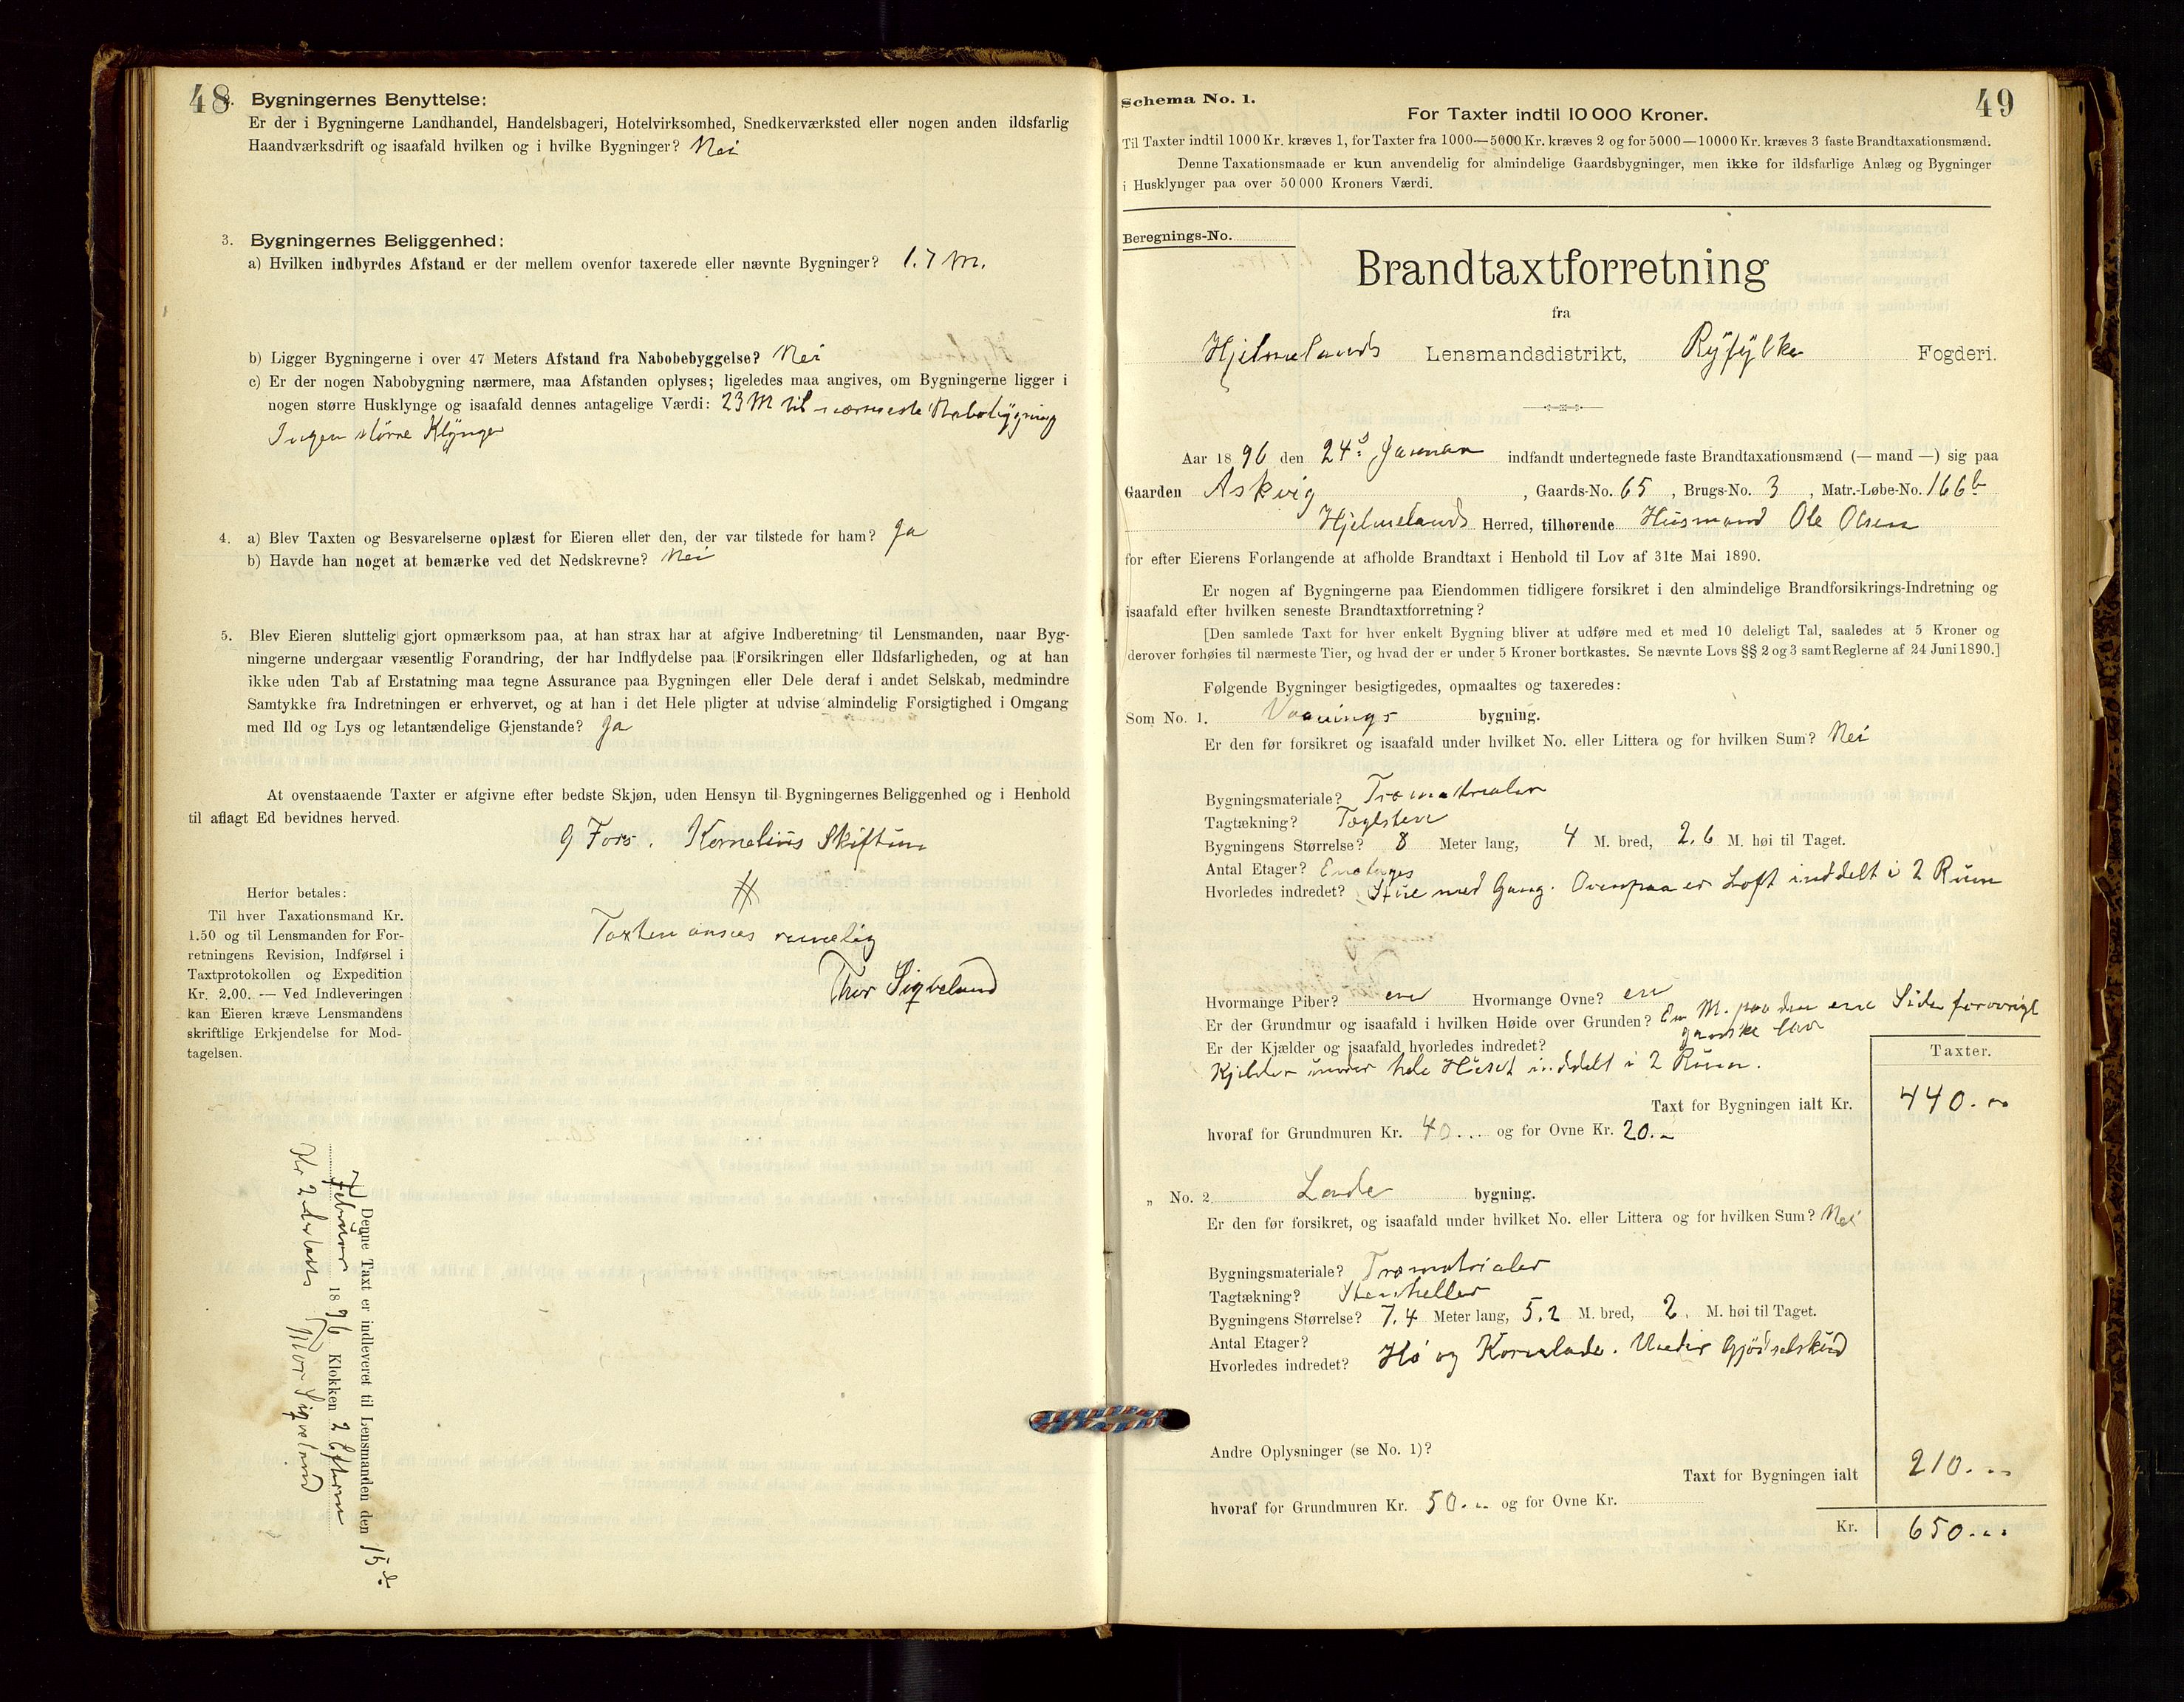 48
2. Bygningernes Benyttelse:
Er der i Bygningerne Landhandel, Handelsbageri, Hotelvirksomhed, Snedkerværksted eller nogen anden ildsfarlig
Haandværksdrift og isaafald hvilken og i hvilke Bygninger? Nei
3. Bygningernes Beliggenhed:
a) Hvilken indbyrdes Afstand er der mellem ovenfor taxerede eller nævnte Bygninger? 1.7 M.
b) Ligger Bygningerne i over 47 Meters Afstand fra Nabobebyggelse? Nei
c) Er der nogen Nabobygning nærmere, maa Afstanden oplyses; ligeledes maa angives, om Bygningerne ligger i
nogen større Husklynge og isaafald dennes antagelige Værdi: 23 M til nærmeste Nabobygning
Ingen større Klynge
4. a) Blev Taxten og Besvarelserne oplæst for Eieren eller den, der var tilstede for ham? Ja
b) Havde han noget at bemærke ved det Nedskrevne? Nei
5. Blev Eieren sluttelig gjort opmærksom paa, at han strax har at afgive Indberetning til Lensmanden, naar Byg-
ningerne undergaar væsentlig Forandring, der har Indflydelse paa Forsikringen eller Ildsfarligheden, og at han
ikke uden Tab af Erstatning maa tegne Assurance paa Bygningen eller Dele deraf i andet Selskab, medmindre
Samtykke fra Indretningen er erhvervet, og at han i det Hele pligter at udvise almindelig Forsigtighed i Omgang
med Ild og Lys og letantændelige Gjenstande? Ja
At ovenstaaende Taxter er afgivne efter bedste Skjøn, uden Hensyn til Bygningernes Beliggenhed og i Henhold
til aflagt Ed bevidnes herved.
G Fors. Kornelius Skiftun
Taxten ansees rimelig
Thor Sigveland
Herfor betales:
Til hver Taxationsmand Kr.
1.50 og til Lensmanden for For-
retningens Revision, Indførsel i
Taxtprotokollen og Expedition
Kr. 2.00. — Ved Indleveringen
kan Eieren kræve Lensmandens
skriftlige Erkjendelse for Mod-
tagelsen.
Denne Taxt er indleveret til Lensmanden den 15de
Februar 1896 Klokken 2 Efterm
Kr 2 Thor Sigveland
49
Schema No. 1.
For Taxter indtil 10 000 Kroner.
Til Taxter indtil 1000 Kr. kræves 1, for Taxter fra 1000—5000 Kr. kræves 2 og for 5000—10000 Kr. kræves 3 faste Brandtaxationsmænd.
Denne Taxationsmaade er kun anvendelig for almindelige Gaardsbygninger, men ikke for ildsfarlige Anlæg og Bygninger
i Husklynger paa over 50 000 Kroners Værdi.
Beregnings-No.
Brandtaxtforretning
fra
Hjelmelands Lensmandsdistrikt, Ryfylke Fogderi.
Aar 1896 den 24de Januar indfandt undertegnede faste Brandtaxationsmænd (— mand —) sig paa
Gaarden Askvig, Gaards-No. 65, Brugs-No. 3, Matr.-Løbe-No. 166b
Hjelmelands Herred, tilhørende Husmand Ole Olsen
for efter Eierens Forlangende at afholde Brandtaxt i Henhold til Lov af 31te Mai 1890.
Er nogen af Bygningerne paa Eiendommen tidligere forsikret i den almindelige Brandforsikrings-Indretning og
isaafald efter hvilken seneste Brandtaxtforretning?
[Den samlede Taxt for hver enkelt Bygning bliver at udføre med et med 10 deleligt Tal, saaledes at 5 Kroner og
derover forhøies til nærmeste Tier, og hvad der er under 5 Kroner bortkastes. Se nævnte Lovs §§ 2 og 3 samt Reglerne af 24 Juni 1890.]
Følgende Bygninger besigtigedes, opmaaltes og taxeredes:
Som No. 1. Vaanings bygning.
Er den før forsikret og isaafald under hvilket No. eller Littera og for hvilken Sum? Nei
Bygningsmateriale? Træmatrialer
Tagtækning? Tæglsten
Bygningens Størrelse? 8 Meter lang, 4 M. bred, 2,6 M. høi til Taget.
Antal Etager? Enetages
Hvorledes indredet? Stue med Gang. Ovenpaa er Loft inddelt i 2 Rum
Hvormange Piber? en Hvormange Ovne? en
Er der Grundmur og isaafald i hvilken Høide over Grunden? En M. paa den ene Side forøvrigt
ganske lav
Er der Kjælder og isaafald hvorledes indredet?
Kjelder under hele Huset inddelt i 2 Rum.
Taxter.
Taxt for Bygningen ialt Kr. 440.
hvoraf for Grundmuren Kr. 40 og for Ovne Kr. 20.
„ No. 2. Lade bygning.
Er den før forsikret, og isaafald under hvilket No. eller Littera og for hvilken Sum? Nei
Bygningsmateriale? Træmatrialer
Tagtækning? Stenheller
Bygningens Størrelse? 7,4 Meter lang, 5,2 M. bred, 2. M. høi til Taget.
Antal Etager?
Hvorledes indredet? Hø og Kornlade. Under Gjødselskud
Andre Oplysninger (se No. 1)?
Taxt for Bygningen ialt 210.
hvoraf for Grundmuren Kr. 50. og for Ovne Kr.
Kr. 650.